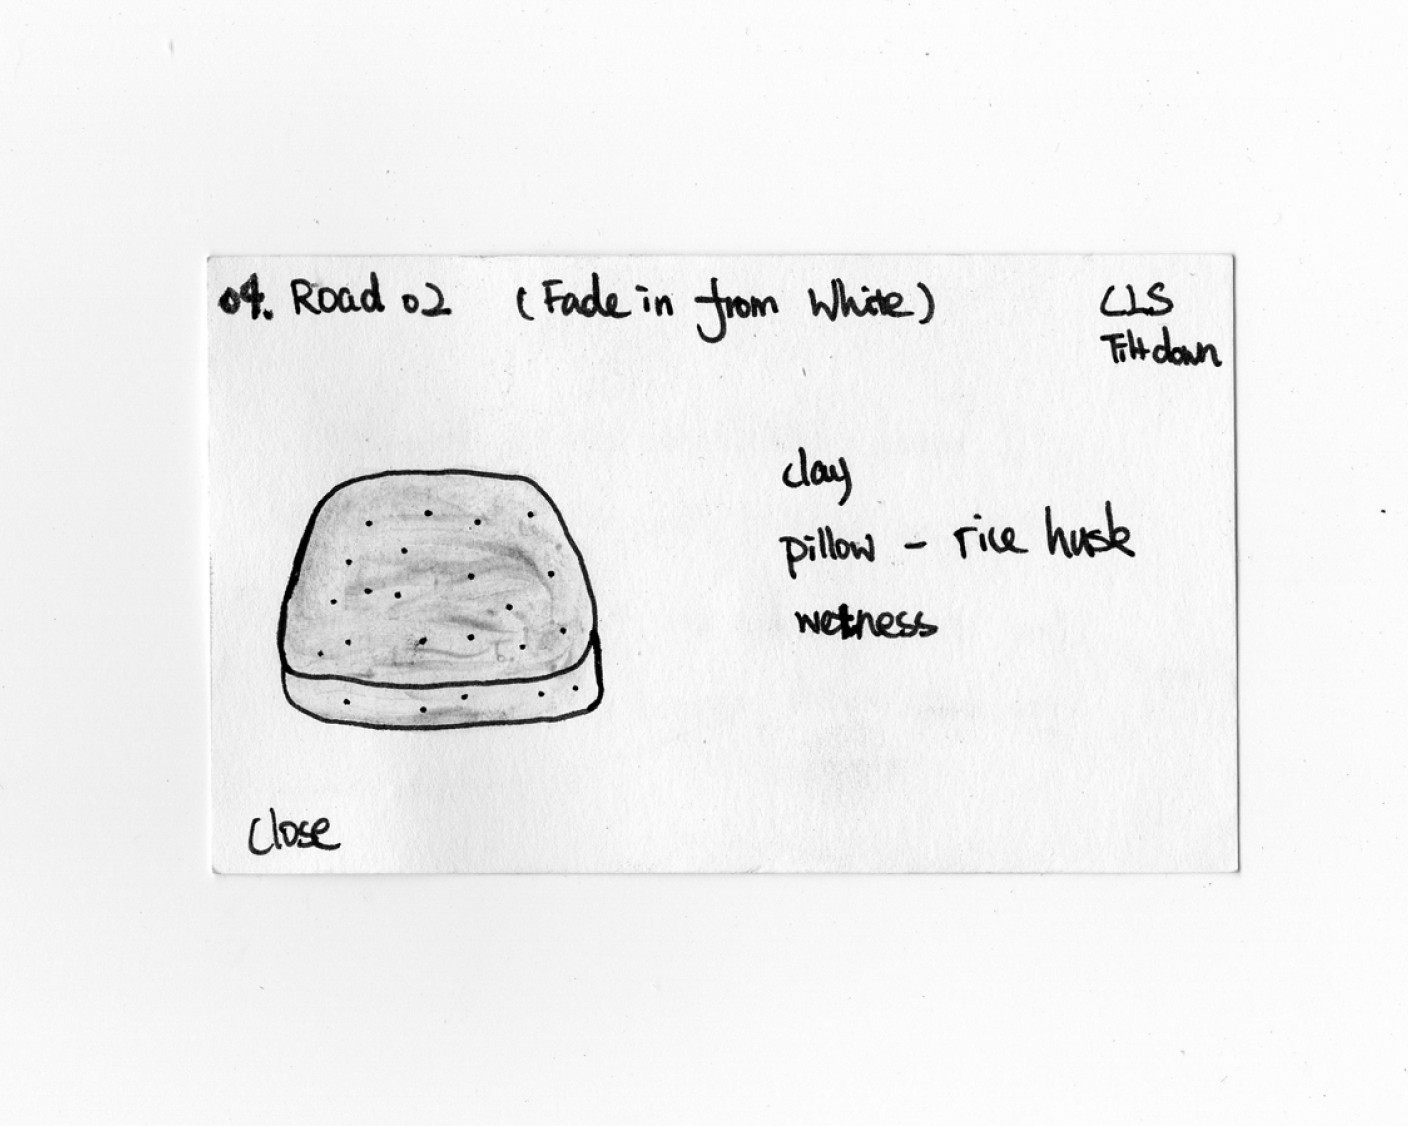 04. Road 02 (Fade in from White) CLS
Tilt down
clay
pillow - rice husk
wetness
Close